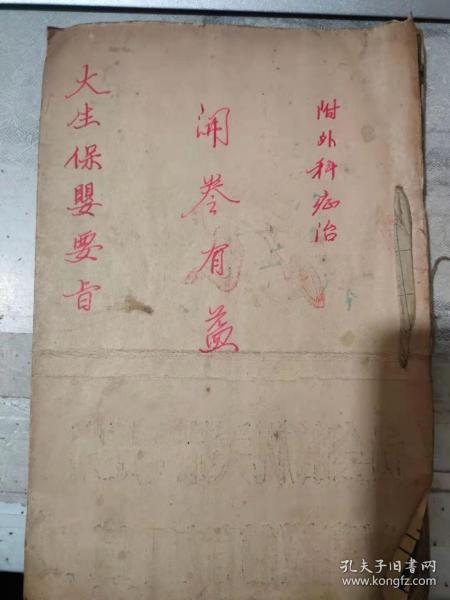 附外科症治
開卷有益
大生保嬰要旨
孔夫子旧书网
www.kongfz.com